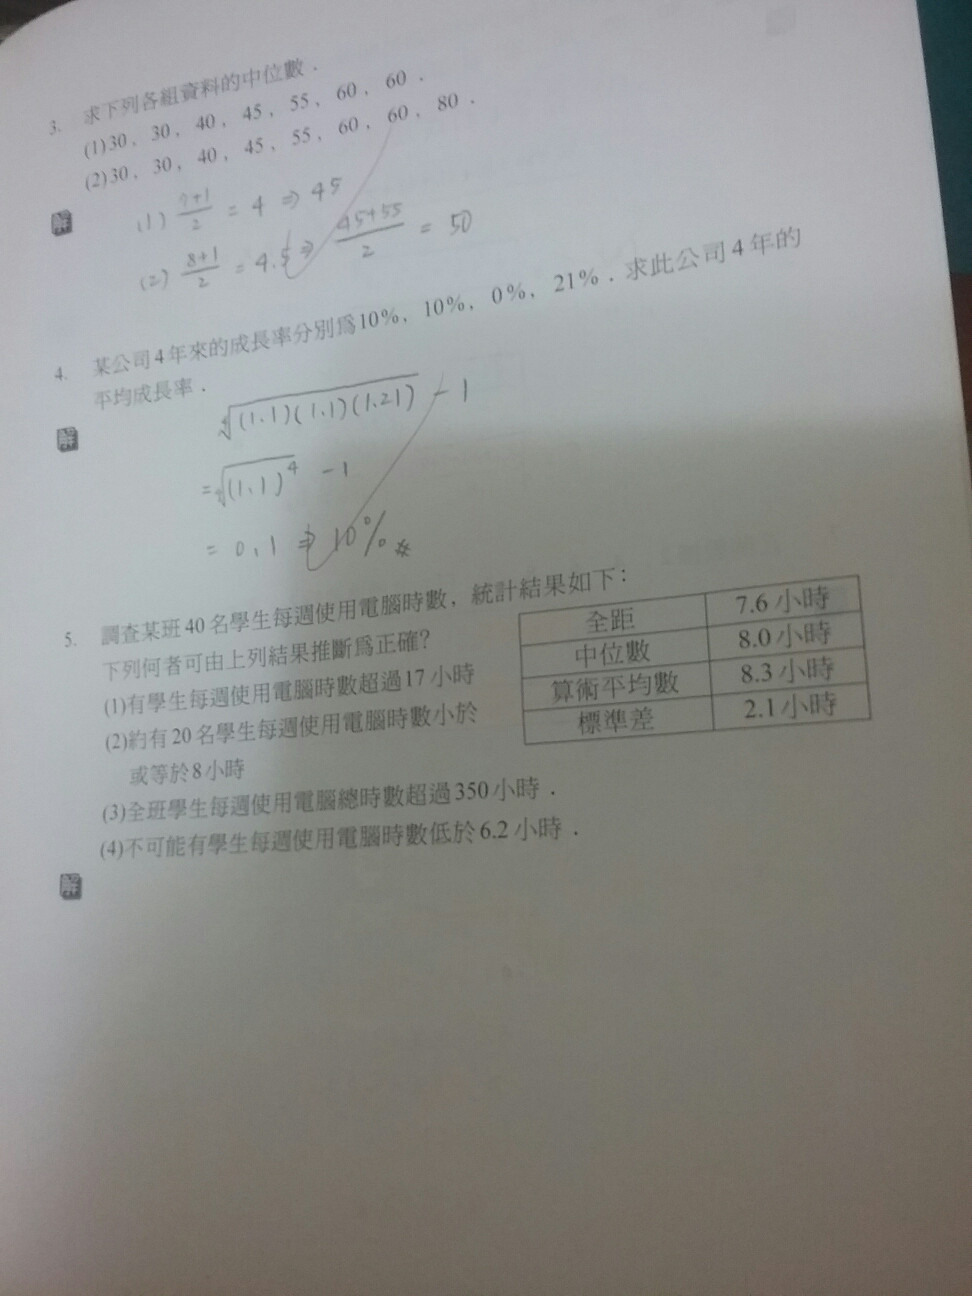 3. 求下列各組資料的中位數．
(1)30，30，40，45，55，60，60．
(2)30，30，40，45，55，60，60，80．
解
(1) 7+1/2 = 4 ⇒ 45
(2) 8+1/2 = 4.5 ⇒ 45+55/2 = 50
4. 某公司4年來的成長率分別為10%，10%，0%，21%．求此公司4年的
平均成長率．
解
∜(1.1)(1.1)(1.21) - 1
= ∜(1.1)⁴ - 1
= 0.1 ⇒ 10% *
5. 調查某班40名學生每週使用電腦時數，統計結果如下：
下列何者可由上列結果推斷為正確？
(1)有學生每週使用電腦時數超過17小時
(2)約有20名學生每週使用電腦時數小於
或等於8小時
(3)全班學生每週使用電腦總時數超過350小時．
(4)不可能有學生每週使用電腦時數低於6.2小時．
全距 7.6小時
中位數 8.0小時
算術平均數 8.3小時
標準差 2.1小時
解